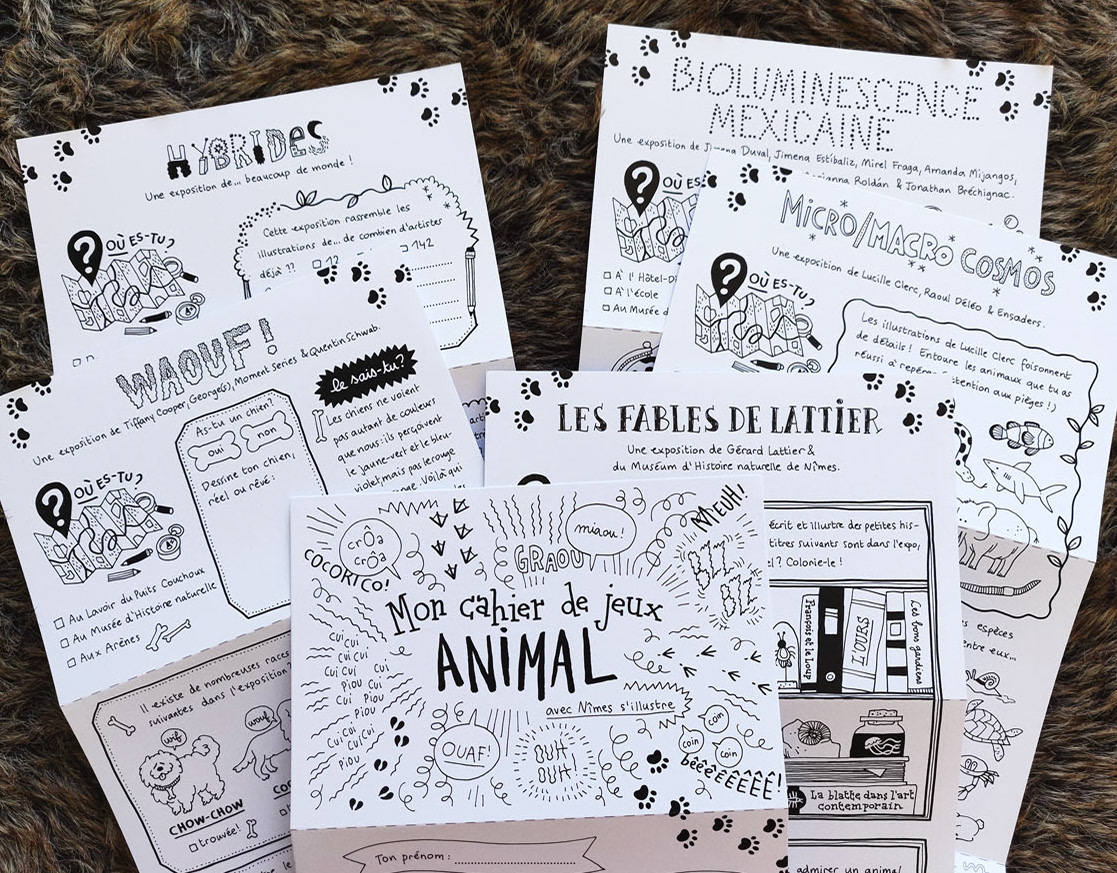 HYBRIDES
Une exposition de... beaucoup de monde !
OÙ ES-TU?
Cette exposition rassemble les
illustrations de... de combien d'artistes
déjà ?? □ 12 □ 142
BIOLUMINESCENCE
MEXICAINE
Une exposition de Jimena Duval, Jimena Estíbaliz, Mirel Fraga, Amanda Mijangos,
Roldán & Jonathan Bréchignac.
OÙ ES-
□ À l'Hôtel-D
□ À l'école
□ Au Musée d
MICRO/MACRO COSMOS
Une exposition de Lucille Clerc, Raoul Déléo & Ensaders.
OÙ ES-TU?
Les illustrations de Lucille Clerc foisonnent
de détails ! Entoure les animaux que tu as
réussi à repére attention aux pièges !)
espèces
ntre eux...
WAOUF !
Une exposition de Tiffany Cooper, George(s), Moment series & Quentin Schwab.
OÙ ES-TU?
□ Au Lavoir du Puits Couchoux
□ Au Musée d'Histoire naturelle
□ Aux Arènes
As-tu un chien?
oui non
Dessine ton chien,
réel ou rêvé :
le sais-tu?
Les chiens ne voient
pas autant de couleurs
que nous : ils perçoivent
le jaune-vert et le bleu
violet, mais pas le rouge
Voilà qui
Il existe de nombreuses races
suivantes dans l'exposition
wif
wouf
CHOW-CHOW
□ trouvée!
LES FABLES DE LATTIER
Une exposition de Gérard Lattier &
du Muséum d'Histoire naturelle de Nîmes.
écrit et illustre des petites his-
titres suivants sont dans l'expo,
el ? Colorie-le !
François et le Loup
L'OURS
Les bons gardiens
La blatte dans l'art
contemporain
admirer un animal
COCORICO!
crôa
crôa
GRAOU
miaou!
MEUH!
Mon cahier de jeux
ANIMAL
avec Nîmes s'illustre
Cui
Cui Cui
Cui Cui
Cui Cui Cui
Piou Cui
Piou Cui
Piou
Cui Cui
Cui
Piou
OUAF!
OUH
OUH!
coin
coin
coin
bêêêÊÊÊÊÊ!
Ton prénom :